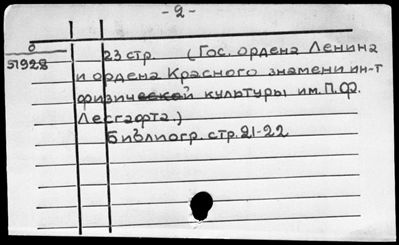 -2-
0
51928
23 стр. (Гос. ордена Ленина
и ордена Красного знамени ин-т
физической культуры им. П.Ф.
Лесгафта.)
Библиогр. стр. 21-22